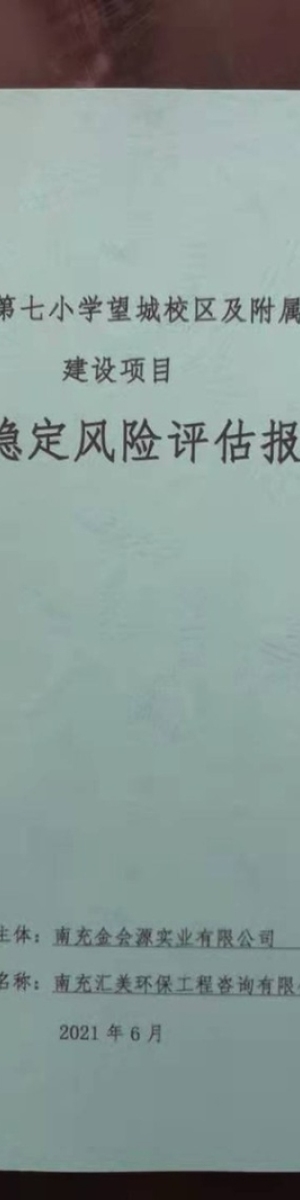 第七小学望城校区及附属
建设项目
稳定风险评估报
主体：南充金会源实业有限公司
名称：南充汇美环保工程咨询有限
2021 年 6 月